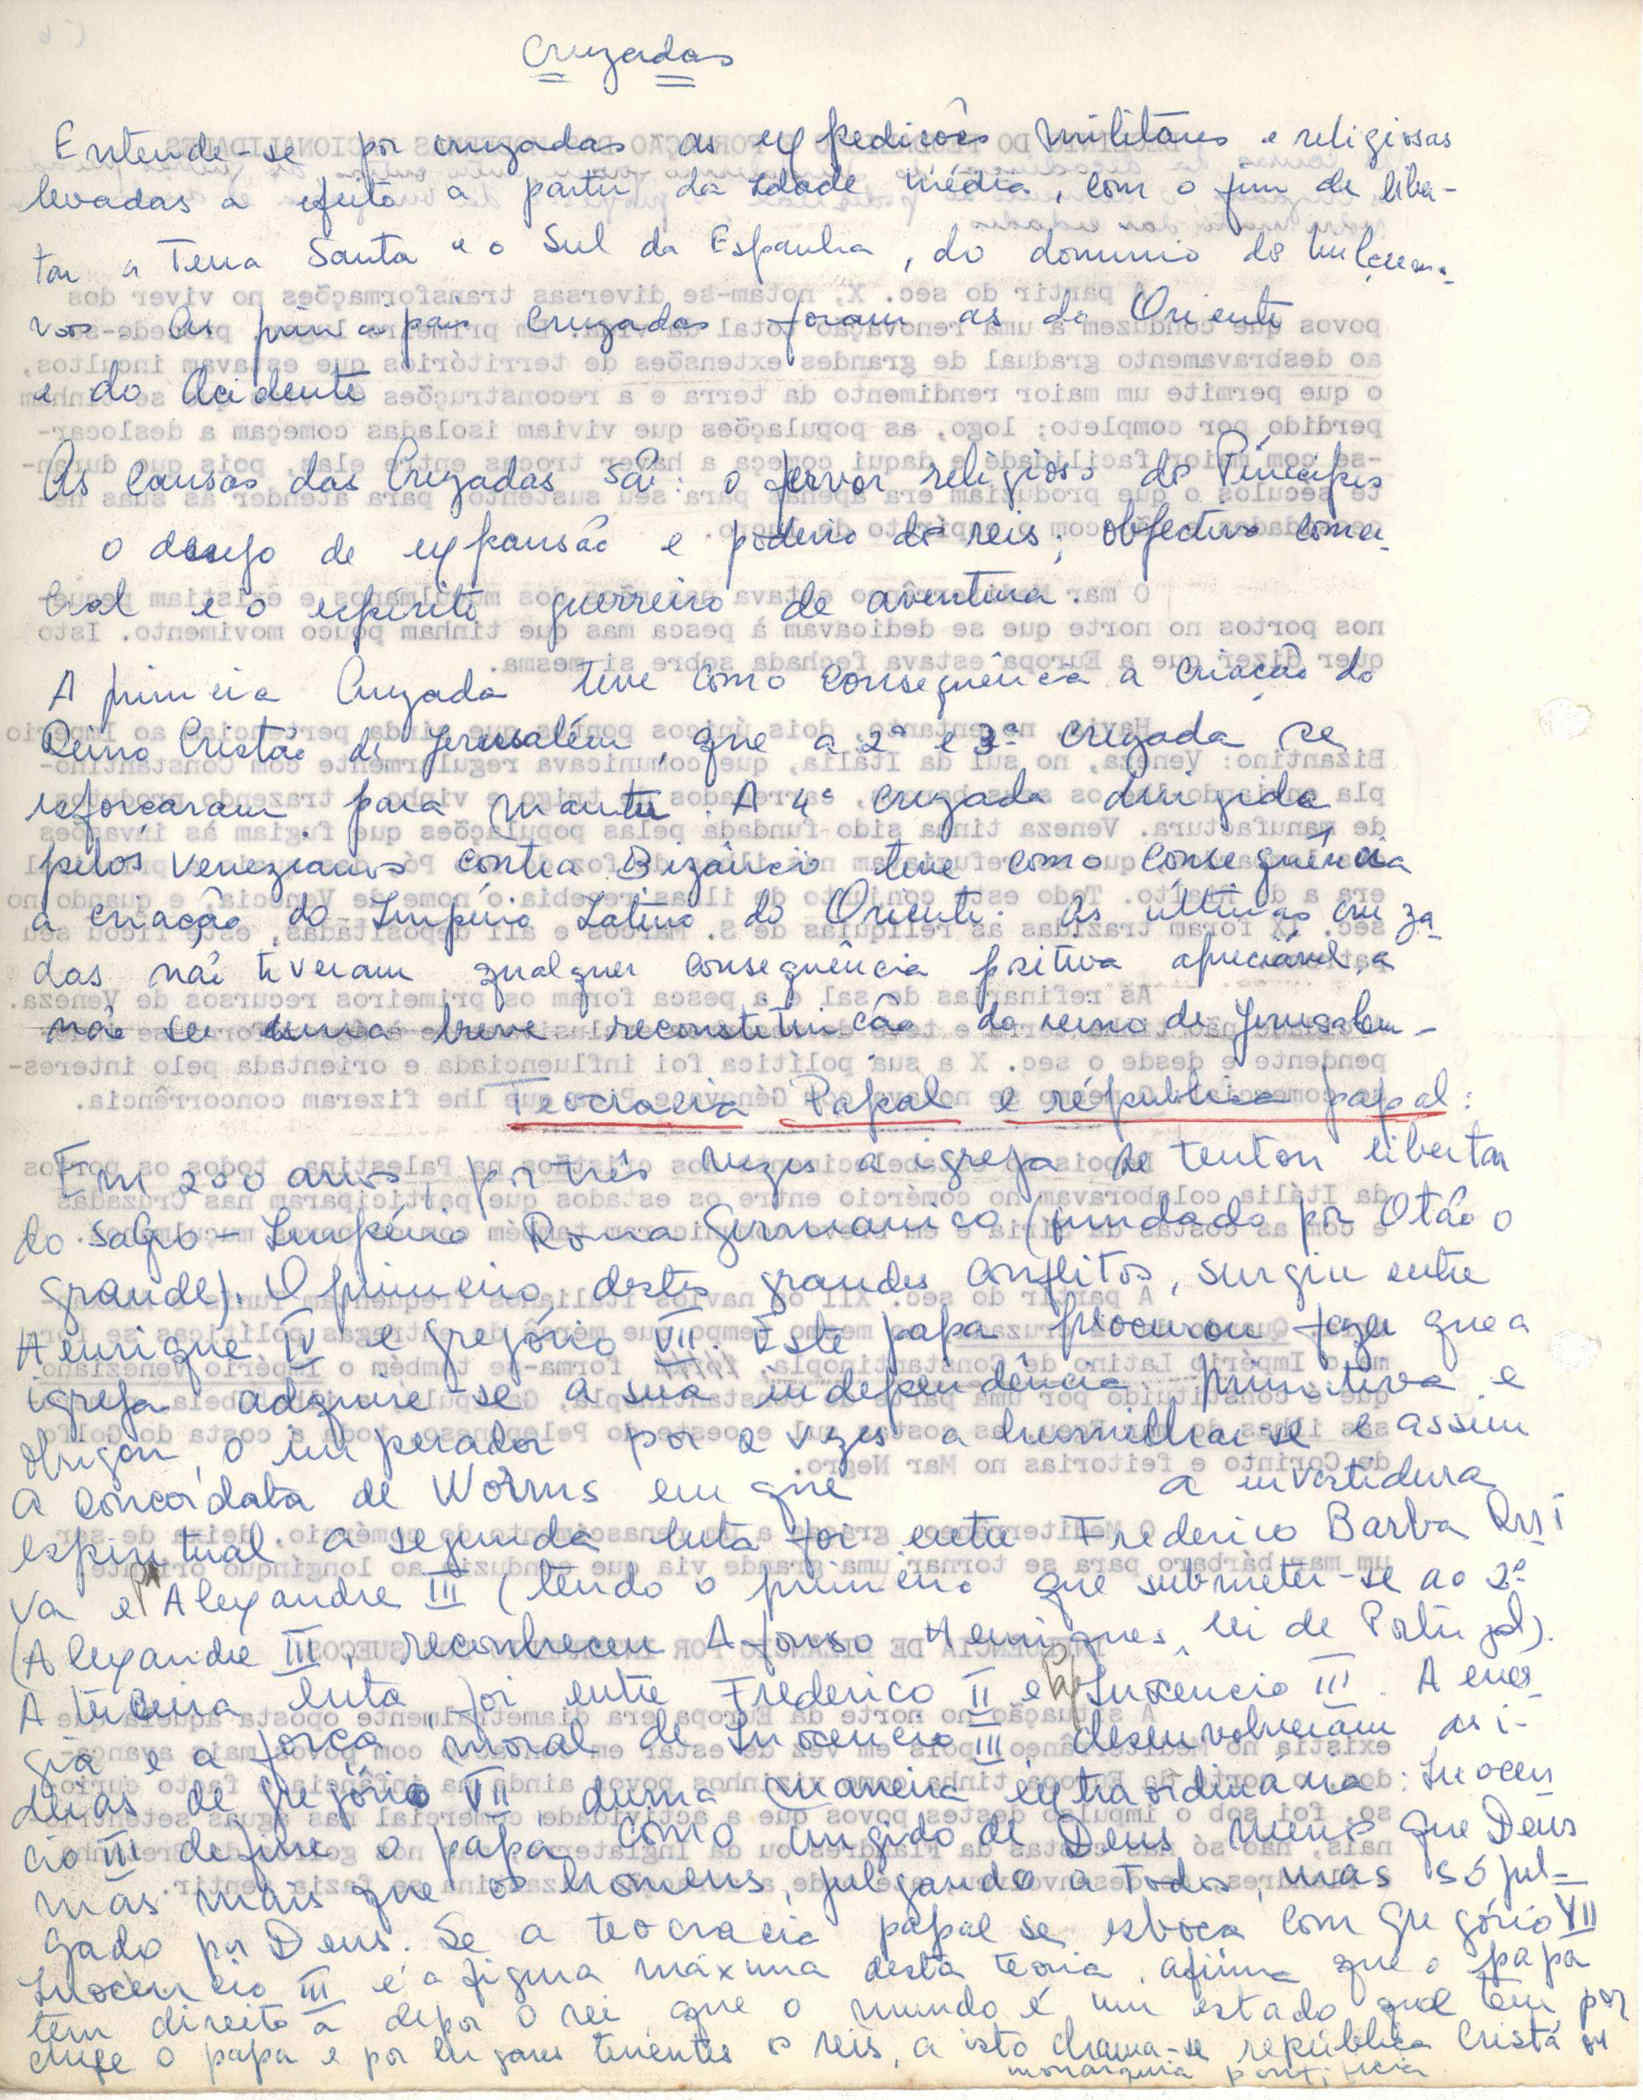 Cruzadas
Entende-se por cruzadas as expedicões militares e religiosas
levadas a efeito a partir da Idade média, com o fim de liber-
tar a Terra Santa e o Sul da Espanha, do dominio dos
As principais Cruzadas foram as do Oriente
e do Ocidente
As Causas das Cruzadas são: o fervor religioso dos Príncipes
o desejo de expansão e poderio dos reis; objectivo comer-
cial e o espírito guerreiro de aventura.
A primeira Cruzada teve como consequência a criação do
Reino Cristão de Jerusalém, que a 2ª e 3ª cruzada se
esforçaram para manter. A 4ª cruzada dirigida
pelos venezianos contra Bizâncio teve como consequência
a criação do Império Latino do Oriente. As últimas cruza-
das não tiveram qualquer consequência positiva apreciável, a
não ser uma breve reconstituição do reino de Jerusalem-
Teocracia Papal e república papal:
Em 200 anos, por três vezes a igreja se tentou libertar
do Sacro-Império Roma Germanico (fundado por Otão o
grande). O primeiro destes grandes conflitos, surgiu entre
Henrique IV e gregório VII. Este papa procurou fazer que a
igreja adquire-se a sua independência primitiva e
obrigou o imperador por 2 vezes a humilhar se e assim
a concordata de Worms em que a investidura
espiritual a segunda luta foi entre Frederico Barba Rui
va e Alexandre III (tendo o primeiro que submeter-se ao 2º
(Alexandre III, reconheceu Afonso Henriques, rei de Portugal).
A terceira luta foi entre Frederico II e Inocêncio III. A ener-
gia e a força moral de Inocencio III, desenvolveram as i-
deias de gregório VII duma maneira extraordinária: Inocen
cio III define o papa como ungido de Deus menos que Deus
mas mais que os homens, julgando a todos, mas só jul=
gado por Deus. Se a teocracia papal se esboca com gregório VII
Inocencio III é a figura máxima desta teoria, afirma que o papa
tem direito a depor o rei que o mundo é um estado que tem por
chefe o papa e por lugares tenentes os reis, a isto chama-se república Cristã ou
monarquia pontificia